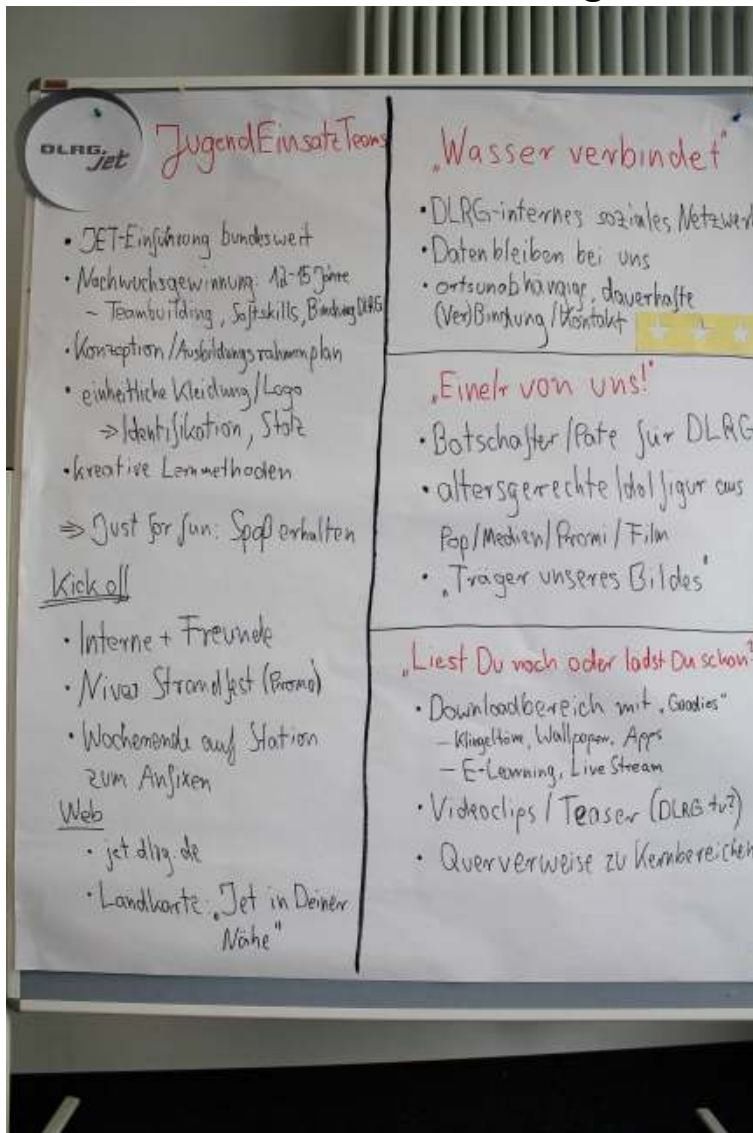 DLRG jet
JugendEinsatzTeams
• JET-Einführung bundesweit
• Nachwuchsgewinnung: 12-15 Jahre
- Teambuilding, Softskills, Bindung DLRG
• Konzeption/Ausbildungsrahmenplan
• einheitliche Kleidung/Logo
⇒ Identifikation, Stolz
• kreative Lernmethoden
⇒ Just for fun: Spaß erhalten
Kick off
• Interne + Freunde
• Nivea Strandfest (Promo)
• Wochenende auf Station
zum Anfixen
Web
• jet.dlrg.de
• Landkarte: „Jet in Deiner
Nähe"
„Wasser verbindet"
• DLRG-internes soziales Netzwerk
• Daten bleiben bei uns
• ortsunabhängige, dauerhafte
(Ver)Bindung/Kontakt
„Eine/r von uns!"
• Botschafter/Pate für DLRG
• altersgerechte Idolfigur aus
Pop/Medien/Promi/Film
• „Träger unseres Bildes"
„Liest Du noch oder lädst Du schon?
• Downloadbereich mit „Goodies"
- Klingeltöne, Wallpaper, Apps
- E-Learning, Live Stream
• Videoclips / Teaser (DLRG tv?)
• Querverweise zu Kernbereichen